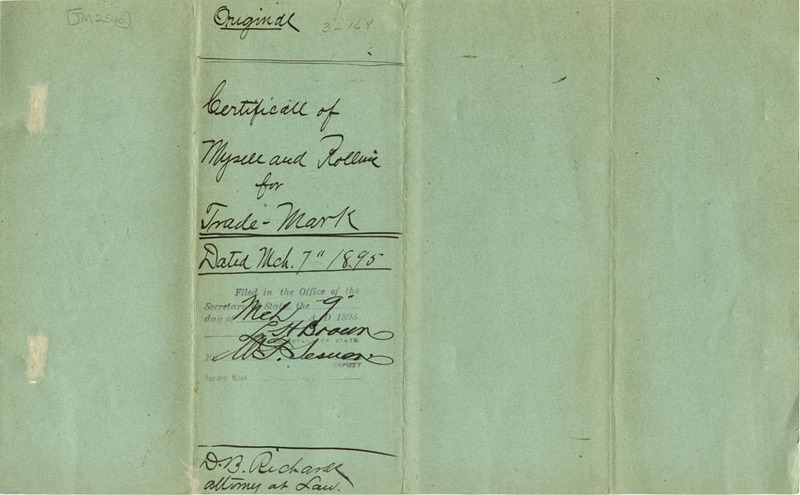 [TM2545]
Original
3-168
Certificate of
Mysell and Rollins
for
Trade-Mark
Dated Mch. 7" 1895
Filed in the Office of the
Secretary of State, the
Mch 9"
day of A.D 1895.
L. H. Brown
SECRETARY OF STATE.
By W. F.
DEPUTY
Record Book
D. B. Richards
attorney at Law.